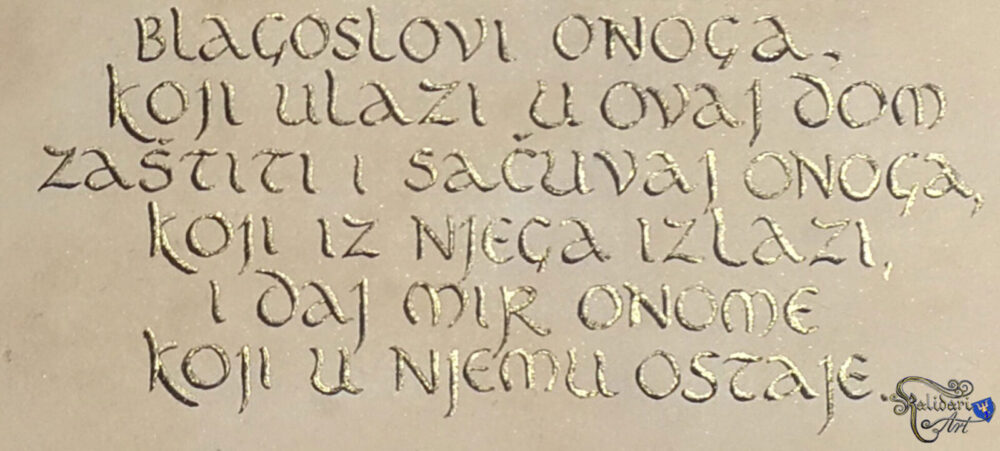 BLAGOSLOVI ONOGA,
KOJI ULAZI U OVAJ DOM
ZAŠTITI I SAČUVAJ ONOGA,
KOJI IZ NJEGA IZLAZI,
I DAJ MIR ONOME
KOJI U NJEMU OSTAJE.
Kalidari
Art